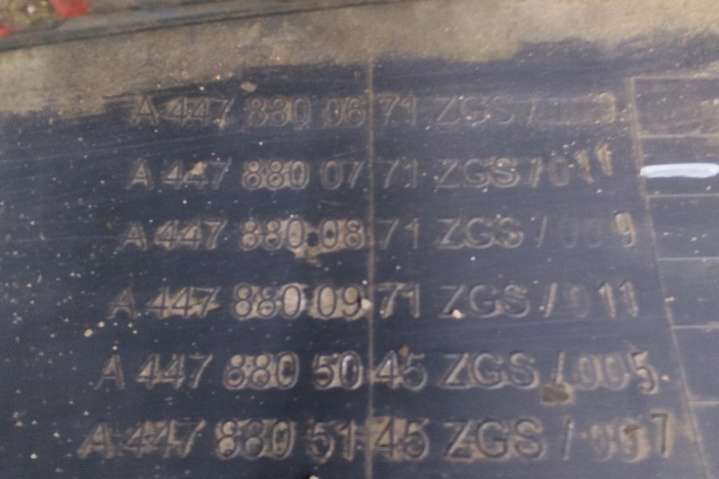 A 447 880 06 71 ZGS /
A 447 880 07 71 ZGS / 011
A 447 880 08 71 ZGS / 009
A 447 880 09 71 ZGS / 011
A 447 880 50 45 ZGS / 005
A 447 880 51 45 ZGS / 007